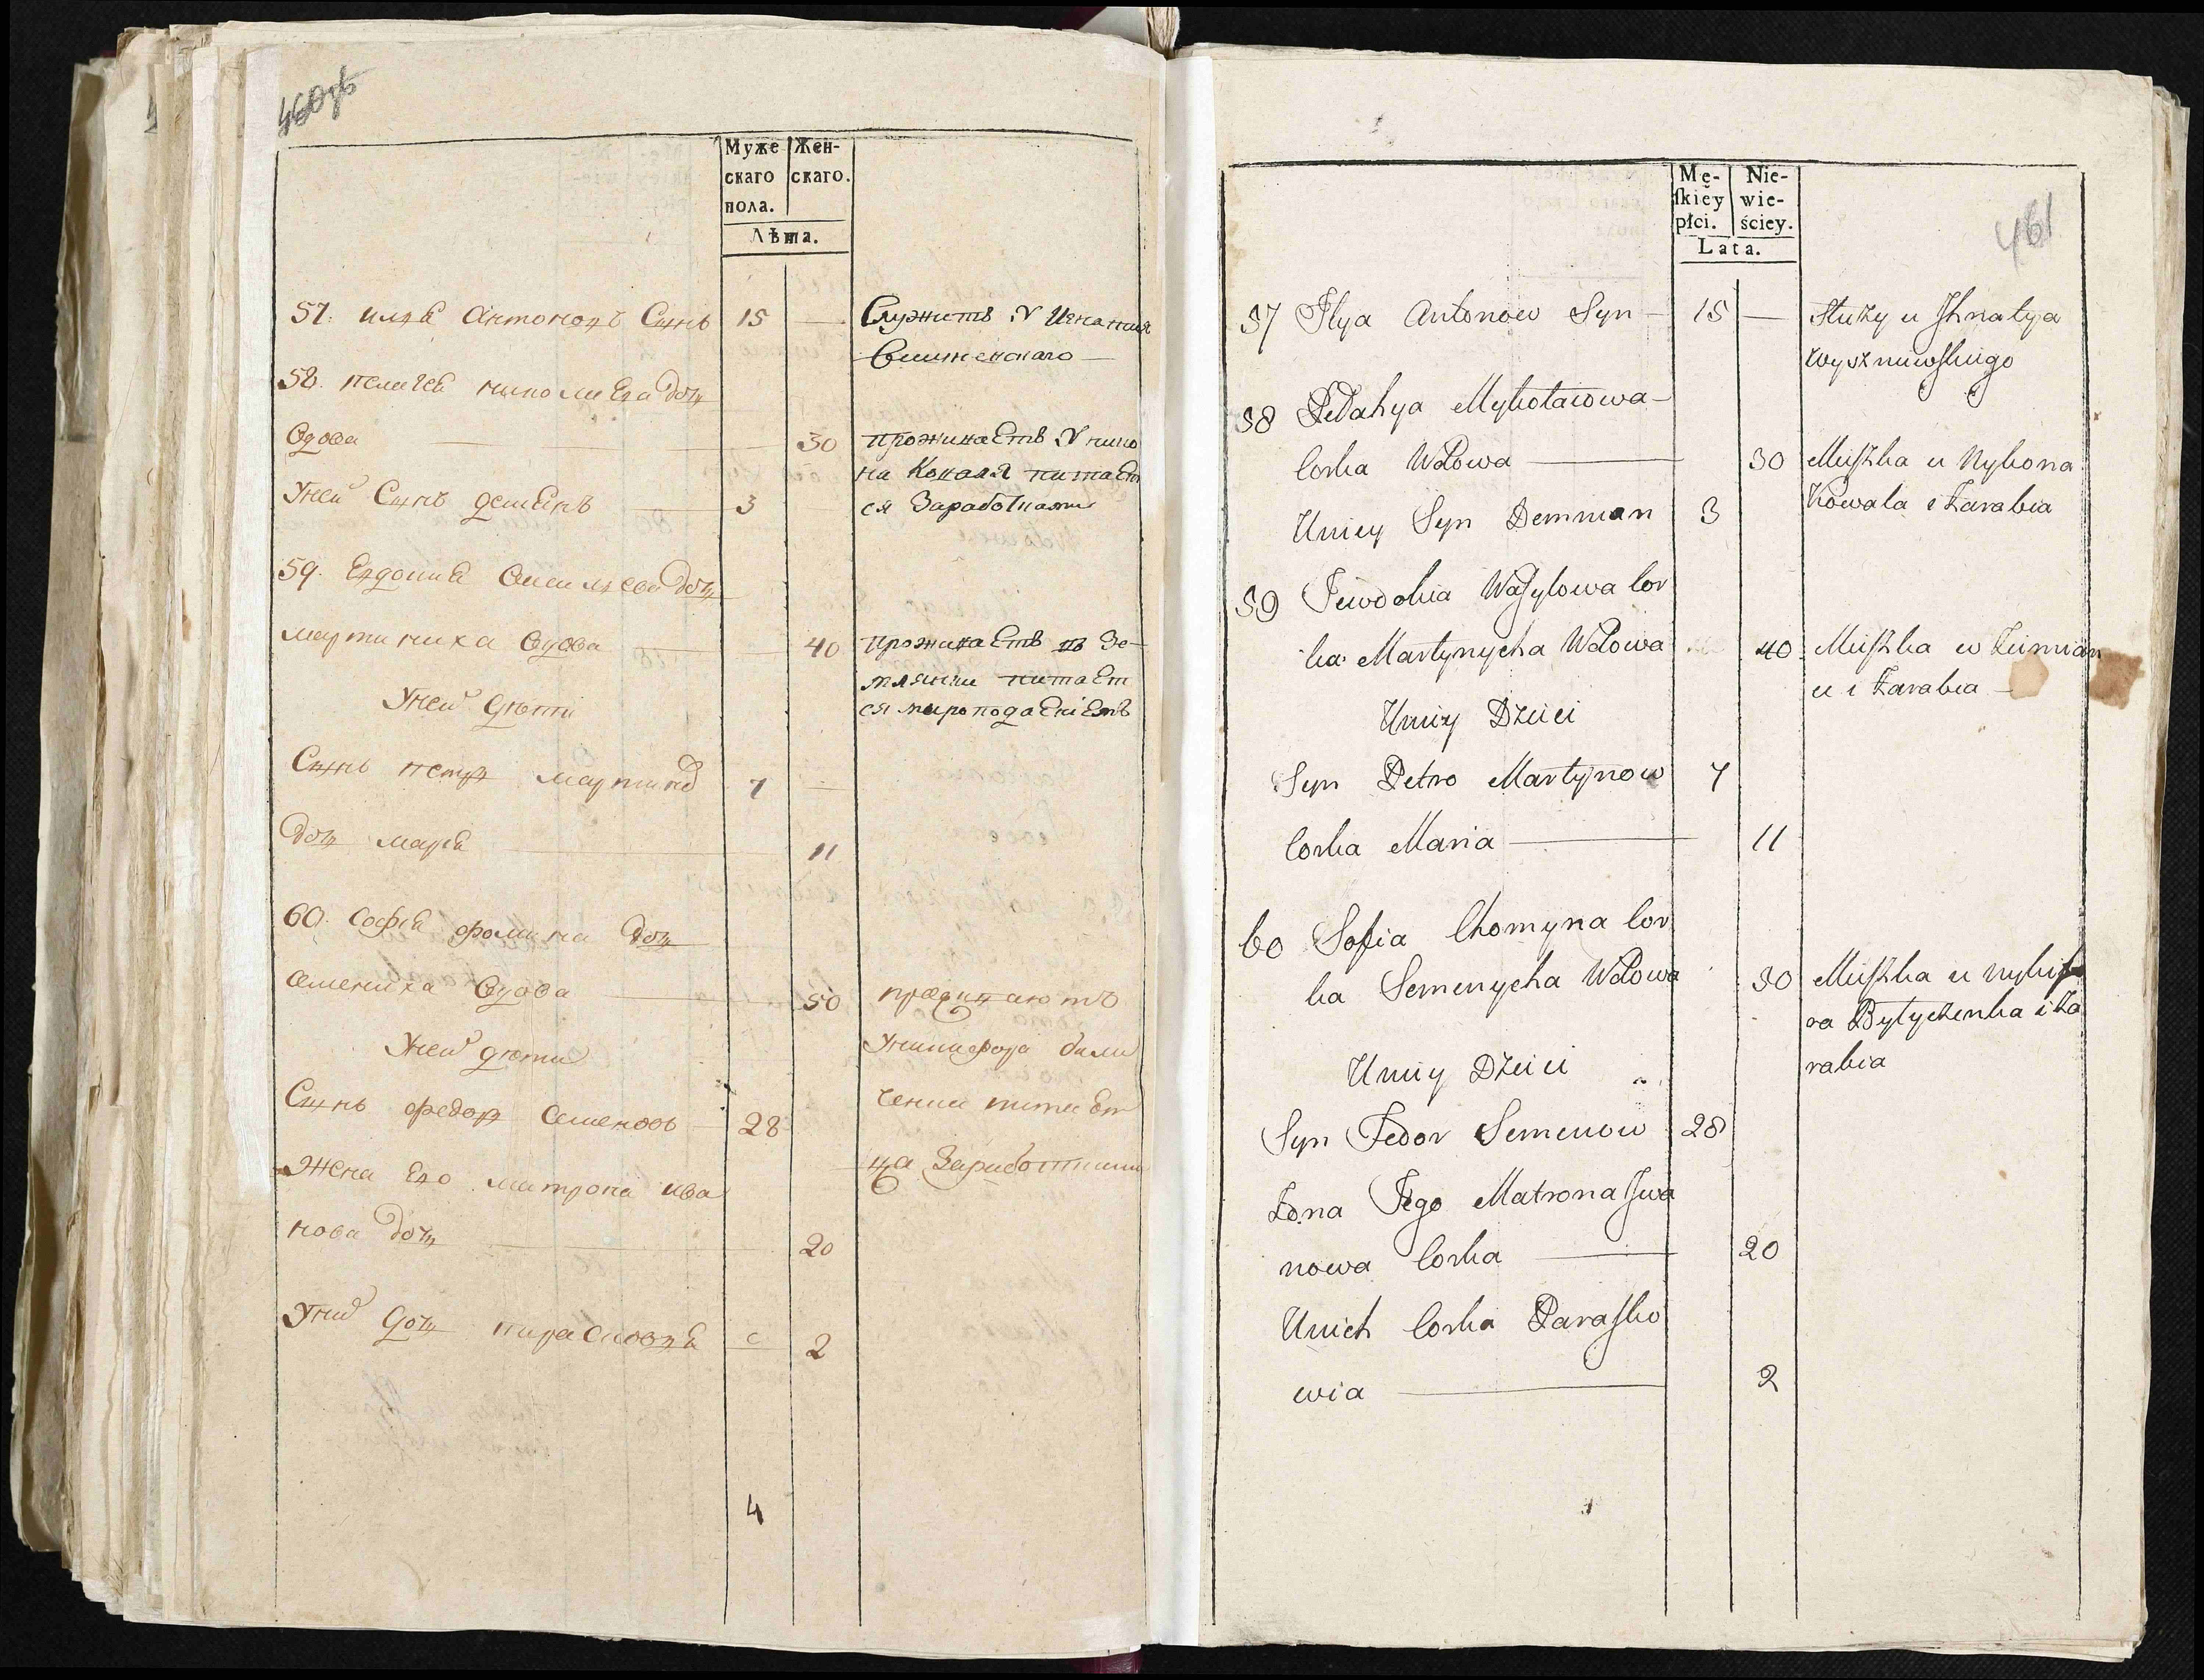 460об
Муже
скаго
пола.
Жен-
скаго.
Лѣта.
57. илѣа Антоновъ Сынъ 15 — Служитъ У Игнатия
Вишневскаго —
58. пелагеа николаева дочь
вдова — 30 проживаетъ У нико
на Коваля питает
У ней Сынъ демЕнъ — 3 ся Заработками
59. Евдокиа васильева дочь
мартиниха вдова — 40 проживаетъ въ Зе-
млянки питает
У ней дѣти ся миро подаЕніЕмъ
Сынъ петръ мартинов 7 —
дочь марѣа — 11
60. Софѣа фомина дочь
семениха вдова — 50
У ней дѣти У никифора били
Сынъ федоръ семеновъ 28 ченки питает
Жена Его матрона ива ца Заработками
нова дочь — 20
У них дочь парасковѣа 2
4
461
Mę-
ſkiéy
płci.
Nie-
wie-
ściey.
Lata.
57 Ilya Antonow Syn — 15 — Służy u Ihnatya
Wyszniewſkiego
58 Pelahya Mykołaiowa —
Corka Wdowa — 30 Mieſzka u Nykona
Kowala i Zarabia
U niey Syn Demman 3
59 Jewdokia Waſylowa Cor
ka Martynycha Wdowa 40 Mieſzka w Ziemian
u i Zarabia —
U niey Dzieci
Syn Petro Martynow 7
Corka Maria — 11
60 Sofia Chomyna Cor
ka Semenycha Wdowa 50 Mieſzka u Nykifo
ra Bylyczenka i Za
rabia
U niey Dzieci
Syn Fedor Semenow 28
Zona Jego Matrona Iwa
nowa Corka — 20
U nich Corka Paraſko
wia — 2